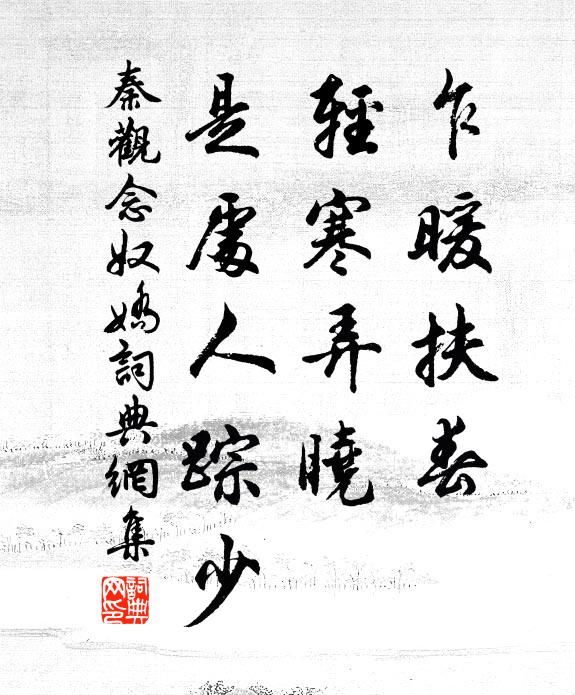 乍暖扶春
輕寒弄曉
是處人踪少
秦觀念奴嬌詞典網集
詞典網印